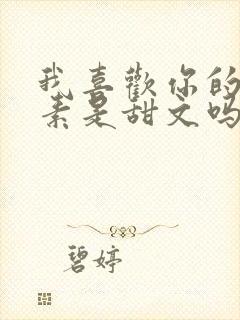 我喜歡你的
素是甜文吗
碧婷